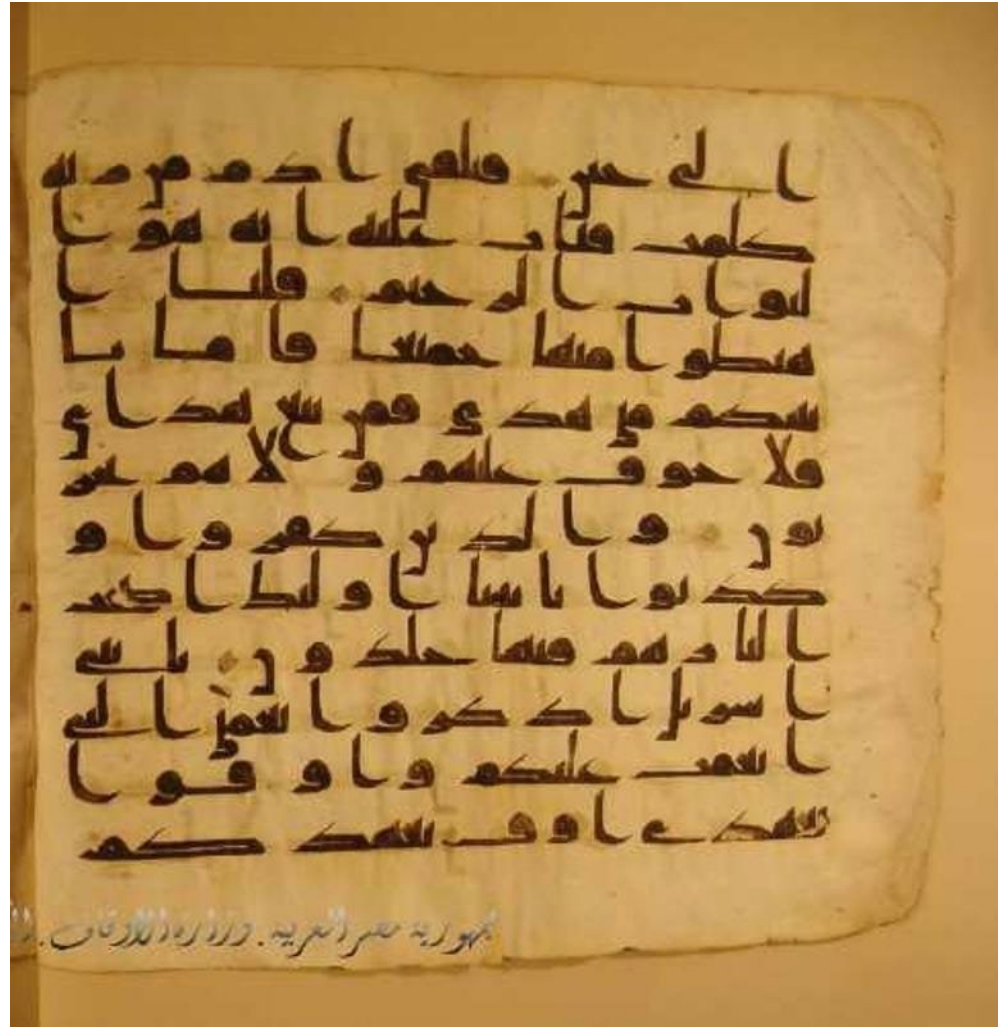 الى حين فتلقى ادم من ربه
كلمت فتاب عليه انه هو ا
لتواب الرحيم قلنا ا
هبطوا منها جميعا فاما يا
تينكم منى هدى فمن تبع هداى
فلا خوف عليهم ولا هم يحز
نون والذين كفروا و
كذبوا بايتنا اولئك اصحب
النار هم فيها خلدون يبنى
اسريل اذكروا نعمتى التى
انعمت عليكم واوفوا
بعهدى اوف بعهدكم
جمهورية مصر العربية . وزارة الأوقاف .